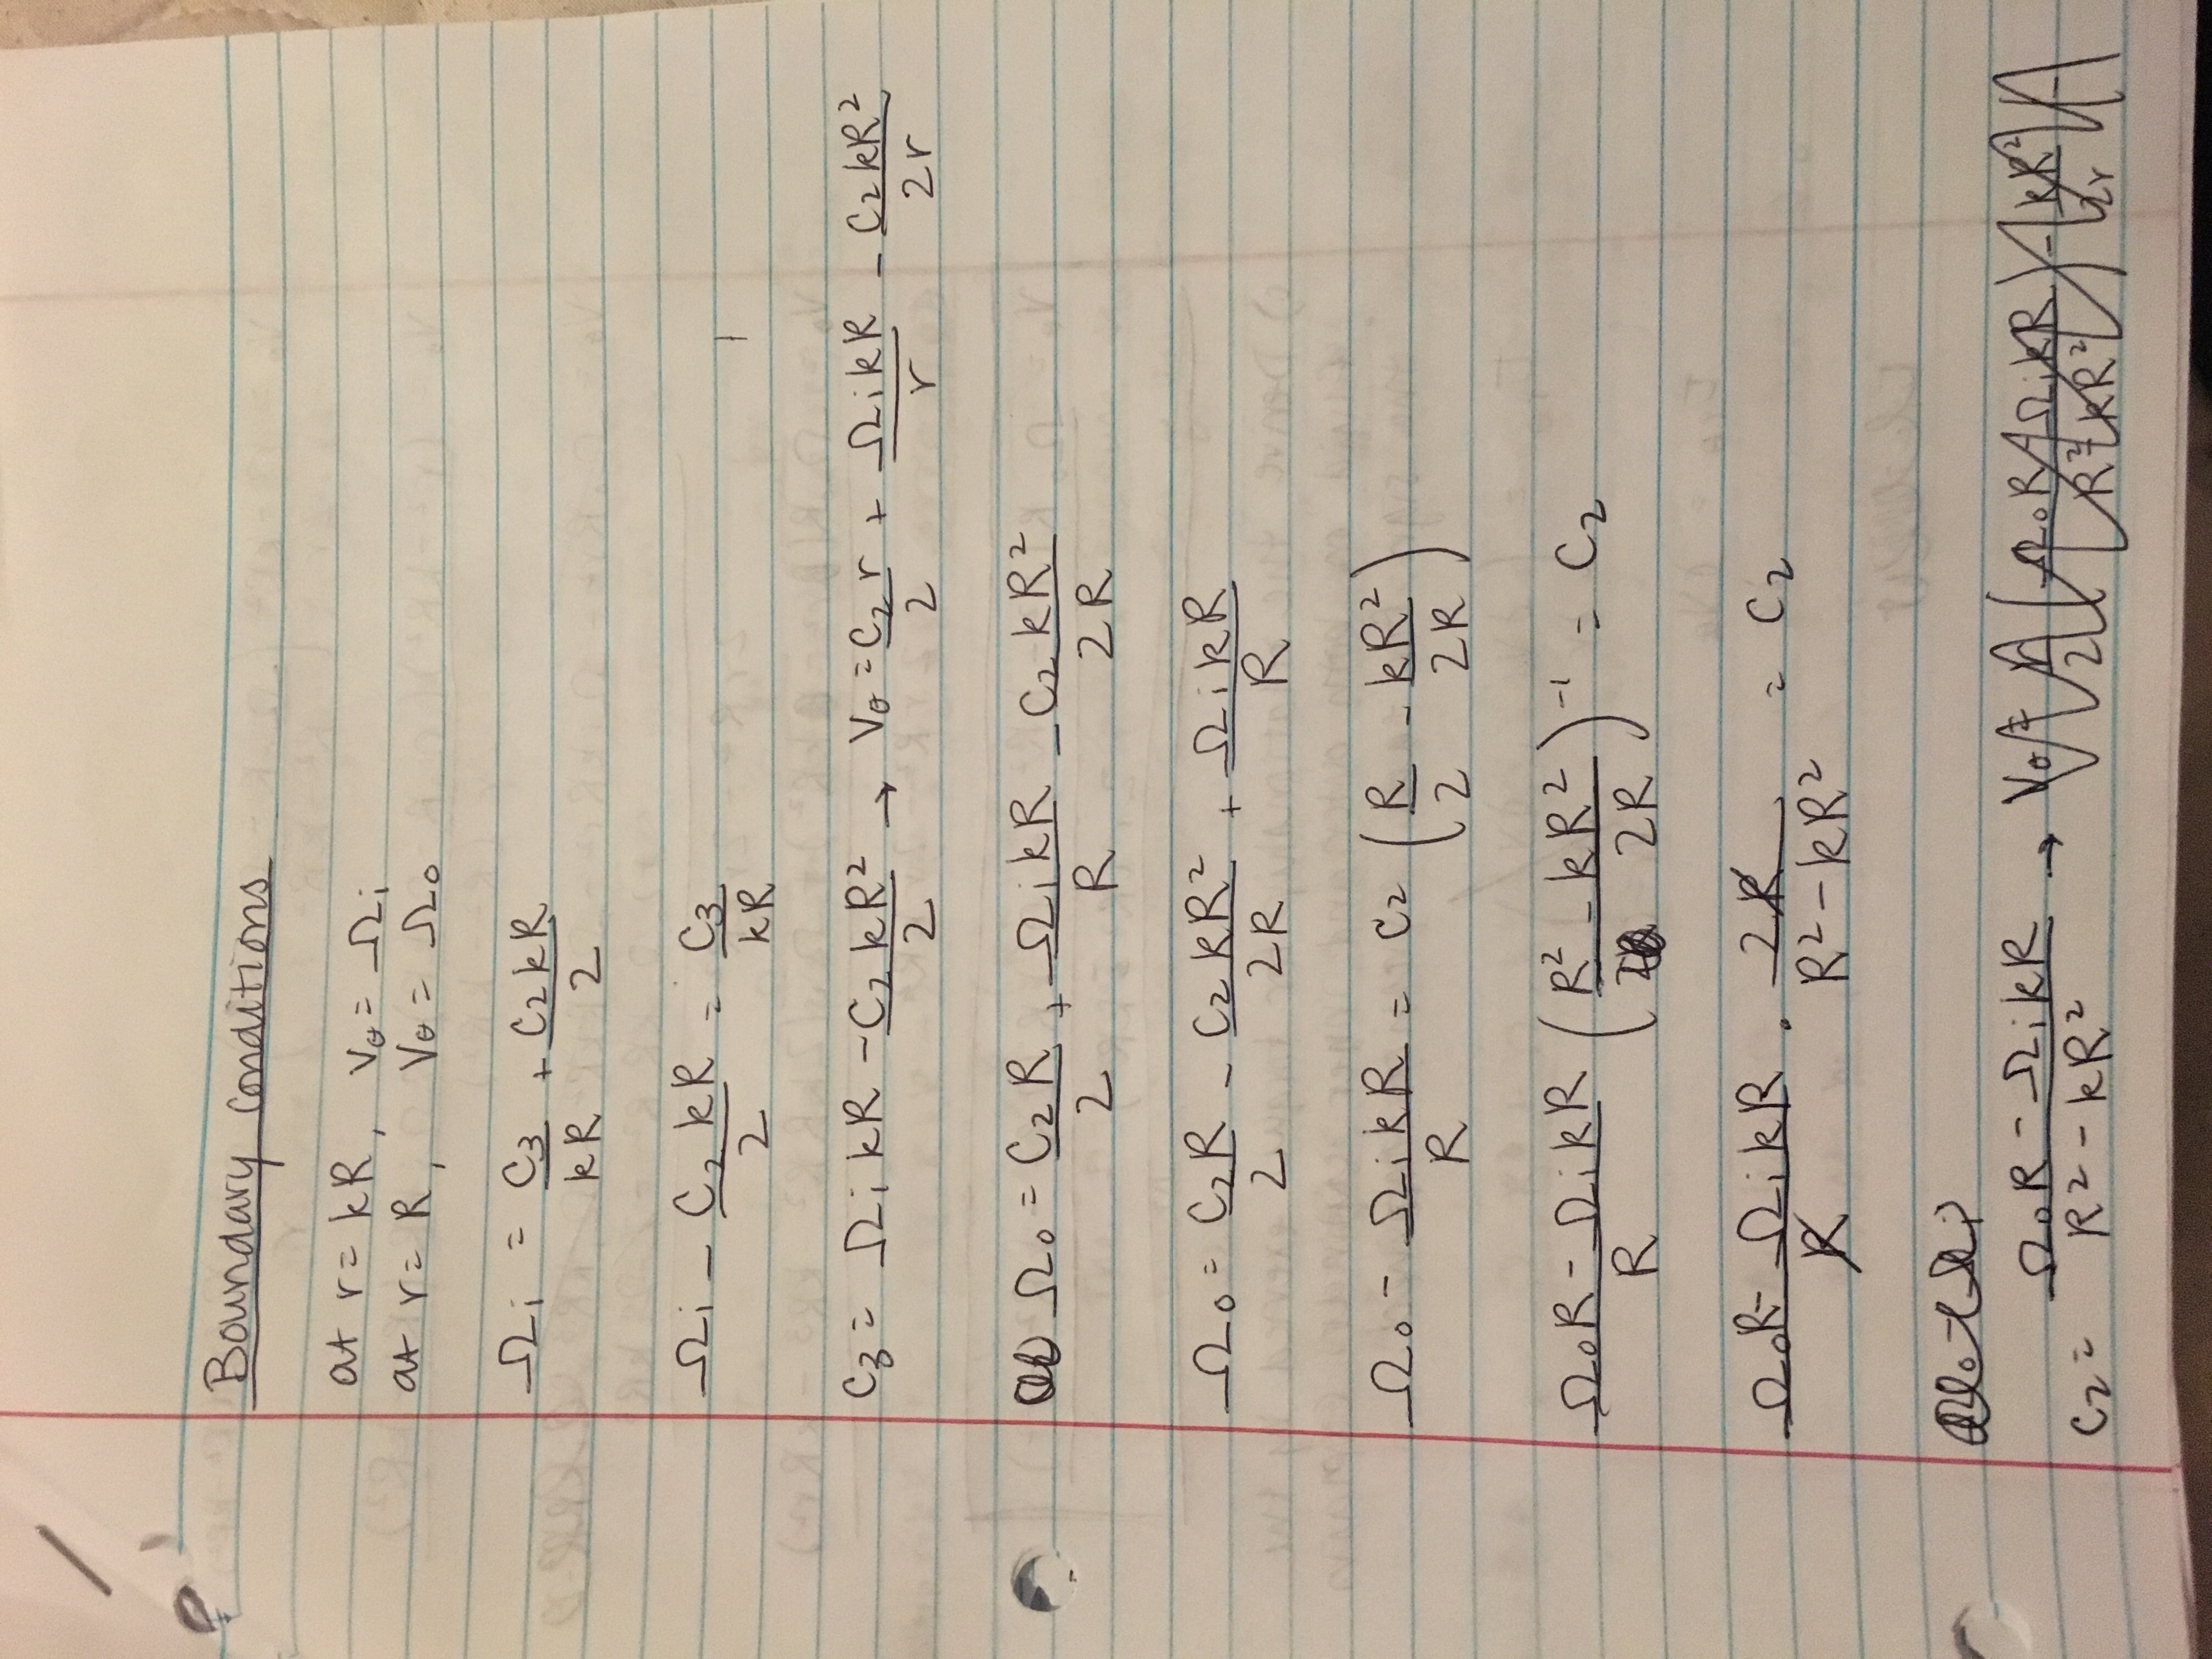 Boundary conditions
at r = kR, Vθ = Ωi
at r = R, Vθ = Ωo
Ωi = C3/kR + C2kR/2
Ωi - C2kR/2 = C3/kR
C3 = ΩikR - C2kR²/2 → Vθ = C2r/2 + ΩikR/r - C2kR²/2r
Ωo = C2R/2 + ΩikR/R - C2kR²/2R
Ωo = C2R/2 - C2kR²/2R + ΩikR/R
Ωo - ΩikR/R = C2 (R/2 - kR²/2R)
ΩoR - ΩikR/R (R² - kR²/2R)⁻¹ = C2
ΩoR - ΩikR/R · 2R/R² - kR² = C2
C2 = ΩoR - ΩikR/R² - kR² →